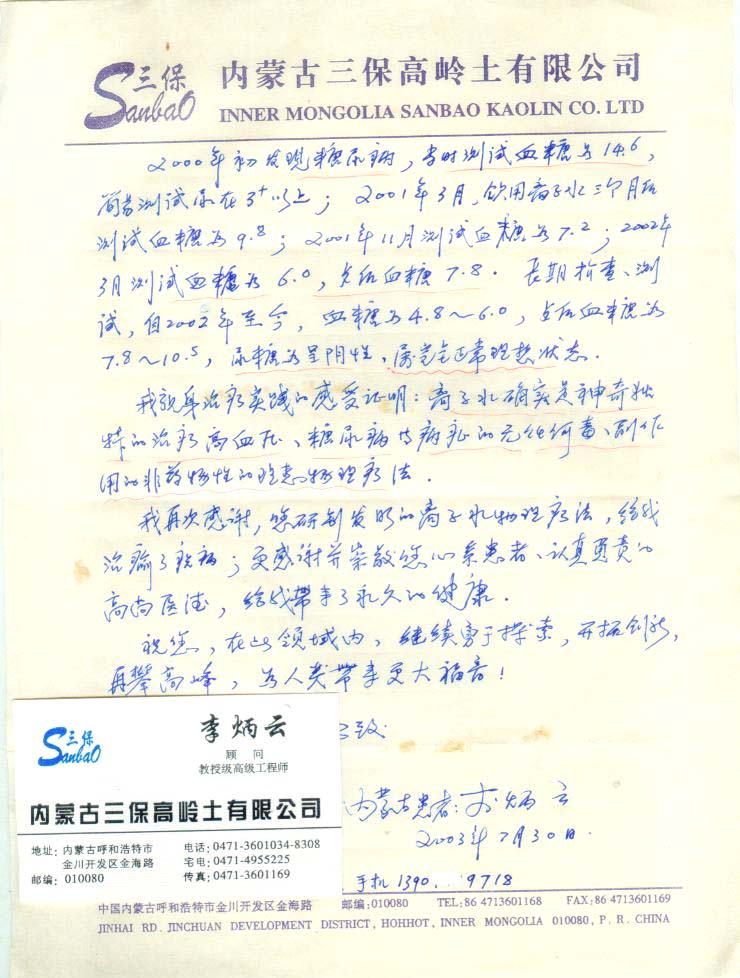 三保
Sanbao
内蒙古三保高岭土有限公司
INNER MONGOLIA SANBAO KAOLIN CO. LTD
2000年初发现糖尿病，当时测试血糖为14.6，
简易测试尿在3+以上；2001年3月，饮用离子水三个月后
测试血糖为9.8；2001年11月测试血糖为7.2；2002年
3月测试血糖为6.0，点后血糖7.8．长期检查、测
试，自2002年至今，血糖为4.8～6.0，点后血糖为
7.8～10.5，尿糖为呈阴性，属完全正常理想状态．
我亲身治疗实践的感受证明：离子水确实是神奇独
特的治疗高血压、糖尿病等病症的无任何毒、副作
用的非药物性的理想物理疗法．
我再次感谢，您研制发明的离子水物理疗法，给我
治愈了疾病；更感谢并崇敬您心系患者、认真负责的
高尚医德，给我带来了永久的健康．
祝您，在此领域内，继续勇于探索，开拓创新，
再攀高峰，为人类带来更大福音！
致
内蒙古患者：李炳云
2003年7月30日．
手机1390 9718
三保
Sanbao
李炳云
顾问
教授级高级工程师
内蒙古三保高岭土有限公司
地址：内蒙古呼和浩特市 电话：0471-3601034-8308
金川开发区金海路 宅电：0471-4955225
邮编：010080 传真：0471-3601169
中国内蒙古呼和浩特市金川开发区金海路 邮编:010080 TEL:86 4713601168 FAX:86 4713601169
JINHAI RD. JINCHUAN DEVELOPMENT DISTRICT, HOHHOT, INNER MONGOLIA 010080, P. R. CHINA